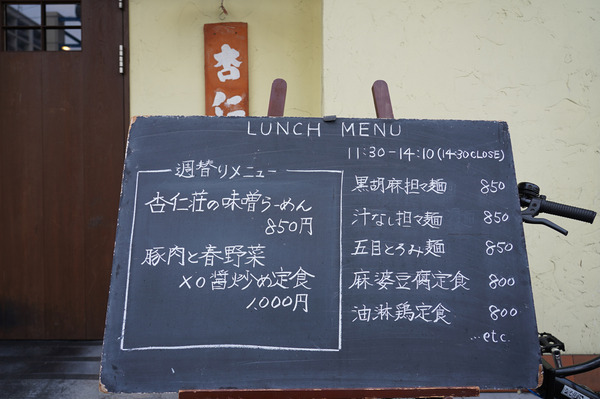 杏仁
LUNCH MENU
11:30-14:10(14:30CLOSE)
週替りメニュー
杏仁荘の味噌らーめん
850円
豚肉と春野菜
XO醤炒め定食
1,000円
黒胡麻担々麺 850
汁なし担々麺 850
五目とろみ麺 850
麻婆豆腐定食 800
油淋鶏定食 800
...etc.